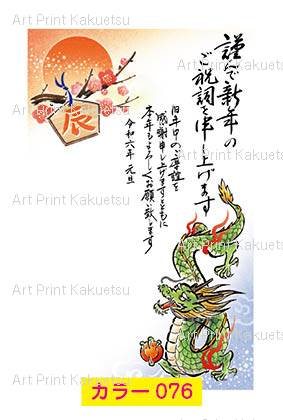 謹んで新年の
ご祝詞を申し上げます
旧年中のご厚誼を
感謝申し上げますとともに
本年もよろしくお願い致します
令和六年 元旦
辰
Art Print Kakuetsu Art Print Kakuetsu
Art Print Kakuetsu Art Print Kakuetsu
Art Print Kakuetsu Art Print Kakuetsu
Art Print Kakuetsu Art Print Kakuetsu
Art Print Kakuetsu Art Print Kakuetsu
Art Print Kakuetsu Art Print Kakuetsu
カラー076